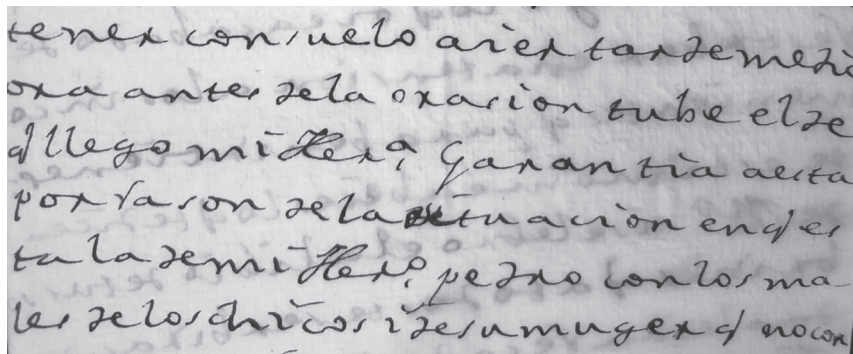 tener consuelo aier tarde media
ora antes dela orasion tube el de
q llego mi Herª Garantia aesta
por rason dela situacion enq es
ta la de mi Herº pedro con los ma
les de los chicos i de su muger q no con